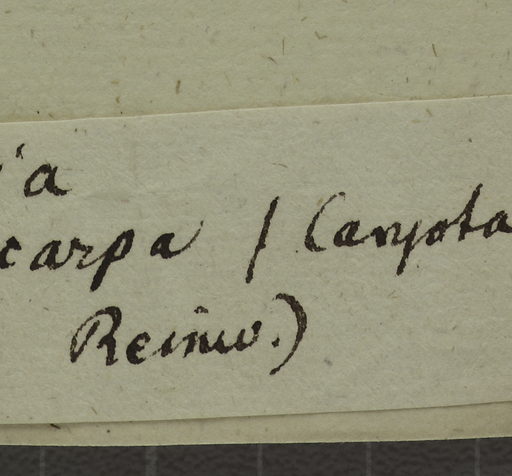 ia
carpa / Canyota
Reinw.)